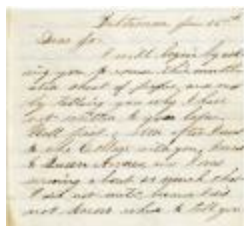 Baltimore Jan 25th
Dear Sir
I will begin by ask
ing you to excuse this
sheet of paper, and
by telling you why I have
not written to you before.
Well first, soon after I went
to the College with you, I went
to and I was
moving about so much that
I did not write, because I did
not know where to tell you